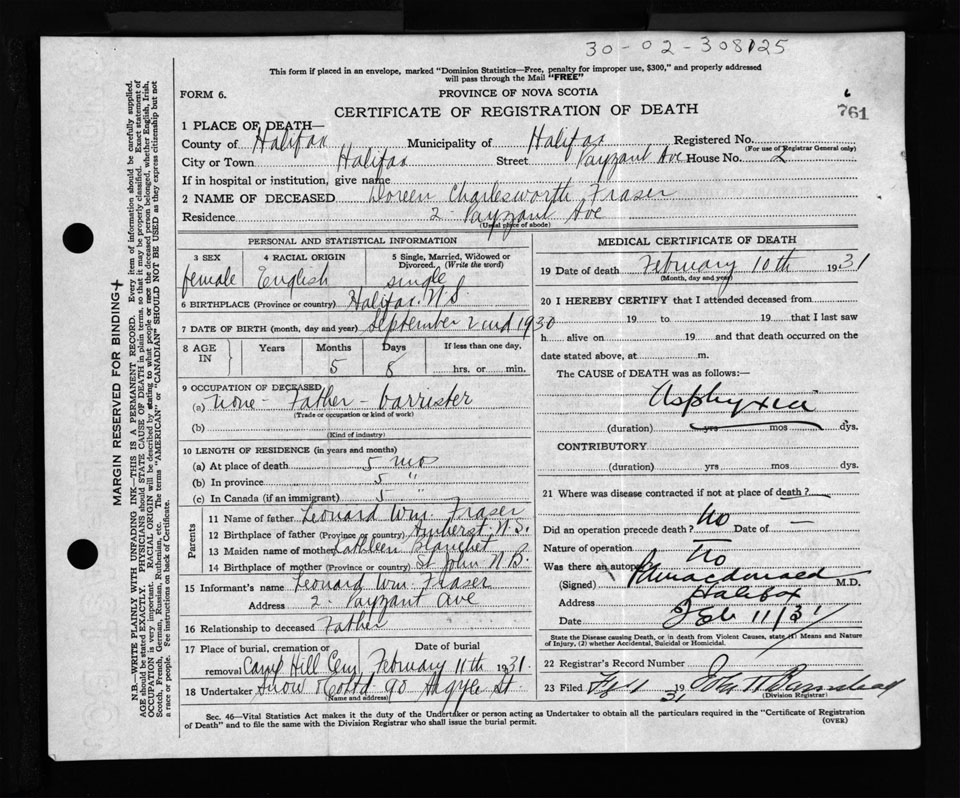 30-02-308125
This form if placed in an envelope, marked "Dominion Statistics—Free, penalty for improper use, $300," and properly addressed
will pass through the Mail "FREE"
FORM 6. PROVINCE OF NOVA SCOTIA
CERTIFICATE OF REGISTRATION OF DEATH 761
1 PLACE OF DEATH—
County of Halifax Municipality of Halifax Registered No.
(For use of Registrar General only)
City or Town Halifax Street Payzant Ave House No. 2
If in hospital or institution, give name
2 NAME OF DECEASED Doreen Charlesworth Fraser
Residence 2 Payzant Ave
(Usual place of abode)
PERSONAL AND STATISTICAL INFORMATION
3 SEX 4 RACIAL ORIGIN 5 Single, Married, Widowed or
Divorced. (Write the word)
female English single
6 BIRTHPLACE (Province or country) Halifax N.S.
7 DATE OF BIRTH (month, day and year) September 2nd 1930
8 AGE IN Years Months Days If less than one day,
5 8 hrs. or min.
9 OCCUPATION OF DECEASED
(a) none - Father - barrister
(Trade or occupation or kind of work)
(b)
(Kind of industry)
10 LENGTH OF RESIDENCE (in years and months)
(a) At place of death 5 mos
(b) In province 5 "
(c) In Canada (if an immigrant) 5 "
Parents
11 Name of father Leonard Wm. Fraser
12 Birthplace of father (Province or country) Amherst N.S.
13 Maiden name of mother Kathleen Blanchet
14 Birthplace of mother (Province or country) St John N.B.
15 Informant's name Leonard Wm. Fraser
Address 2 Payzant Ave
16 Relationship to deceased Father
17 Place of burial, cremation or Date of burial
removal Camp Hill Cem. February 11th 1931
18 Undertaker Snow & Co Ltd 90 Argyle St
(Name and address)
MEDICAL CERTIFICATE OF DEATH
19 Date of death February 10th 1931
(Month, day and year)
20 I HEREBY CERTIFY that I attended deceased from
19 to 19 that I last saw
h alive on 19 and that death occurred on the
date stated above, at m.
The CAUSE of DEATH was as follows:—
Asphyxia
(duration) yrs mos dys.
CONTRIBUTORY
(duration) yrs mos dys.
21 Where was disease contracted if not at place of death?
Did an operation precede death? No Date of —
Nature of operation —
Was there an autopsy No
(Signed) Macdonald M.D.
Address Halifax
Date Feb 11/31
State the Disease causing Death, or in death from Violent Causes, state (1) Means and Nature
of Injury, (2) whether Accidental, Suicidal or Homicidal.
22 Registrar's Record Number
23 Filed 19 31 John
(Division Registrar)
Sec. 46—Vital Statistics Act makes it the duty of the Undertaker or person acting as Undertaker to obtain all the particulars required in the "Certificate of Registration
of Death" and to file the same with the Division Registrar who shall issue the burial permit. (OVER)
MARGIN RESERVED FOR BINDING
N.B.—WRITE PLAINLY WITH UNFADING INK—THIS IS A PERMANENT RECORD. Every item of information should be carefully supplied.
AGE should be stated EXACTLY. PHYSICIANS should STATE CAUSE OF DEATH in plain terms, so that it may be properly classified. Exact statement of
OCCUPATION is very important. RACIAL ORIGIN will be described by stating to what people or race the deceased person belonged, whether English, Irish,
Scotch, French, German, Russian, Ruthenian, etc. The terms "AMERICAN" or "CANADIAN" SHOULD NOT BE USED as they express citizenship but not
a race or people. See instructions on back of Certificate.